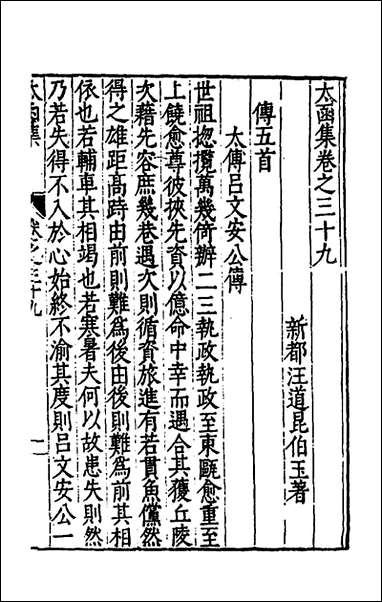 太函集卷之三十九
新都汪道昆伯玉著
傳五首
太傅呂文安公傳
世祖揔攬萬幾倚辦二三執政執政至東甌愈重至
上饒愈尊彼挾先資以億命中幸而遇合其獲丘陵
次藉先容庶幾巷遇次則循資旅進有若貫魚儻然
得之雄距高跱由前則難爲後由後則難爲前其相
依也若輔車其相竭也若寒暑夫何以故患失則然
乃若失得不入於心始終不渝其度則呂文安公一
太函集
卷之三十九
一